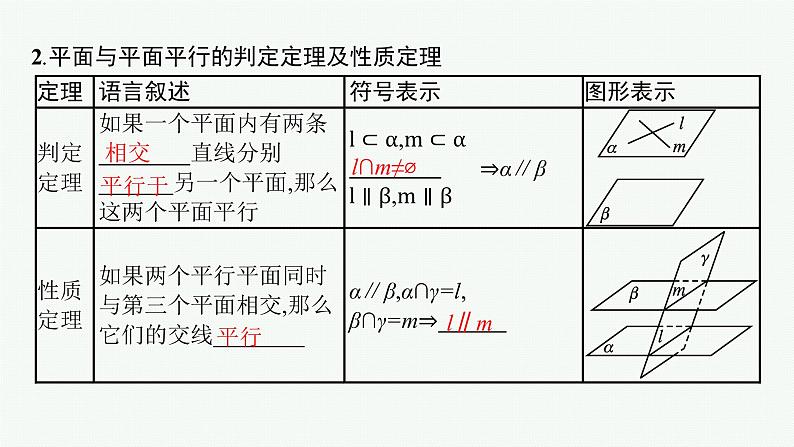 2.平面与平面平行的判定定理及性质定理
定理 语言叙述 符号表示 图形表示
判定
定理
如果一个平面内有两条
相交直线分别
平行于另一个平面,那么
这两个平面平行
l⊂α,m⊂α
l∩m≠∅ ⇒α∥β
l∥β,m∥β
l
α m
β
性质
定理
如果两个平行平面同时
与第三个平面相交,那么
它们的交线平行
α∥β,α∩γ=l,
β∩γ=m⇒l∥m
γ
β m
α l